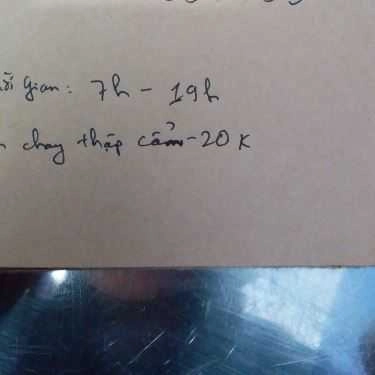 Gian: 7h - 19h
chay thập cẩm - 20K